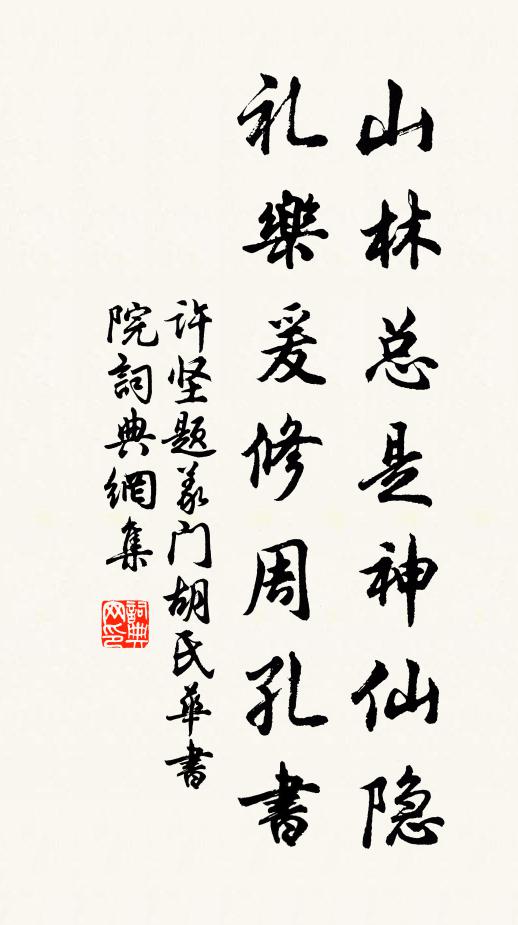 山林总是神仙隐
礼樂爰修周孔書
许坚题義门胡氏華書
院詞典網集
詞典
网印